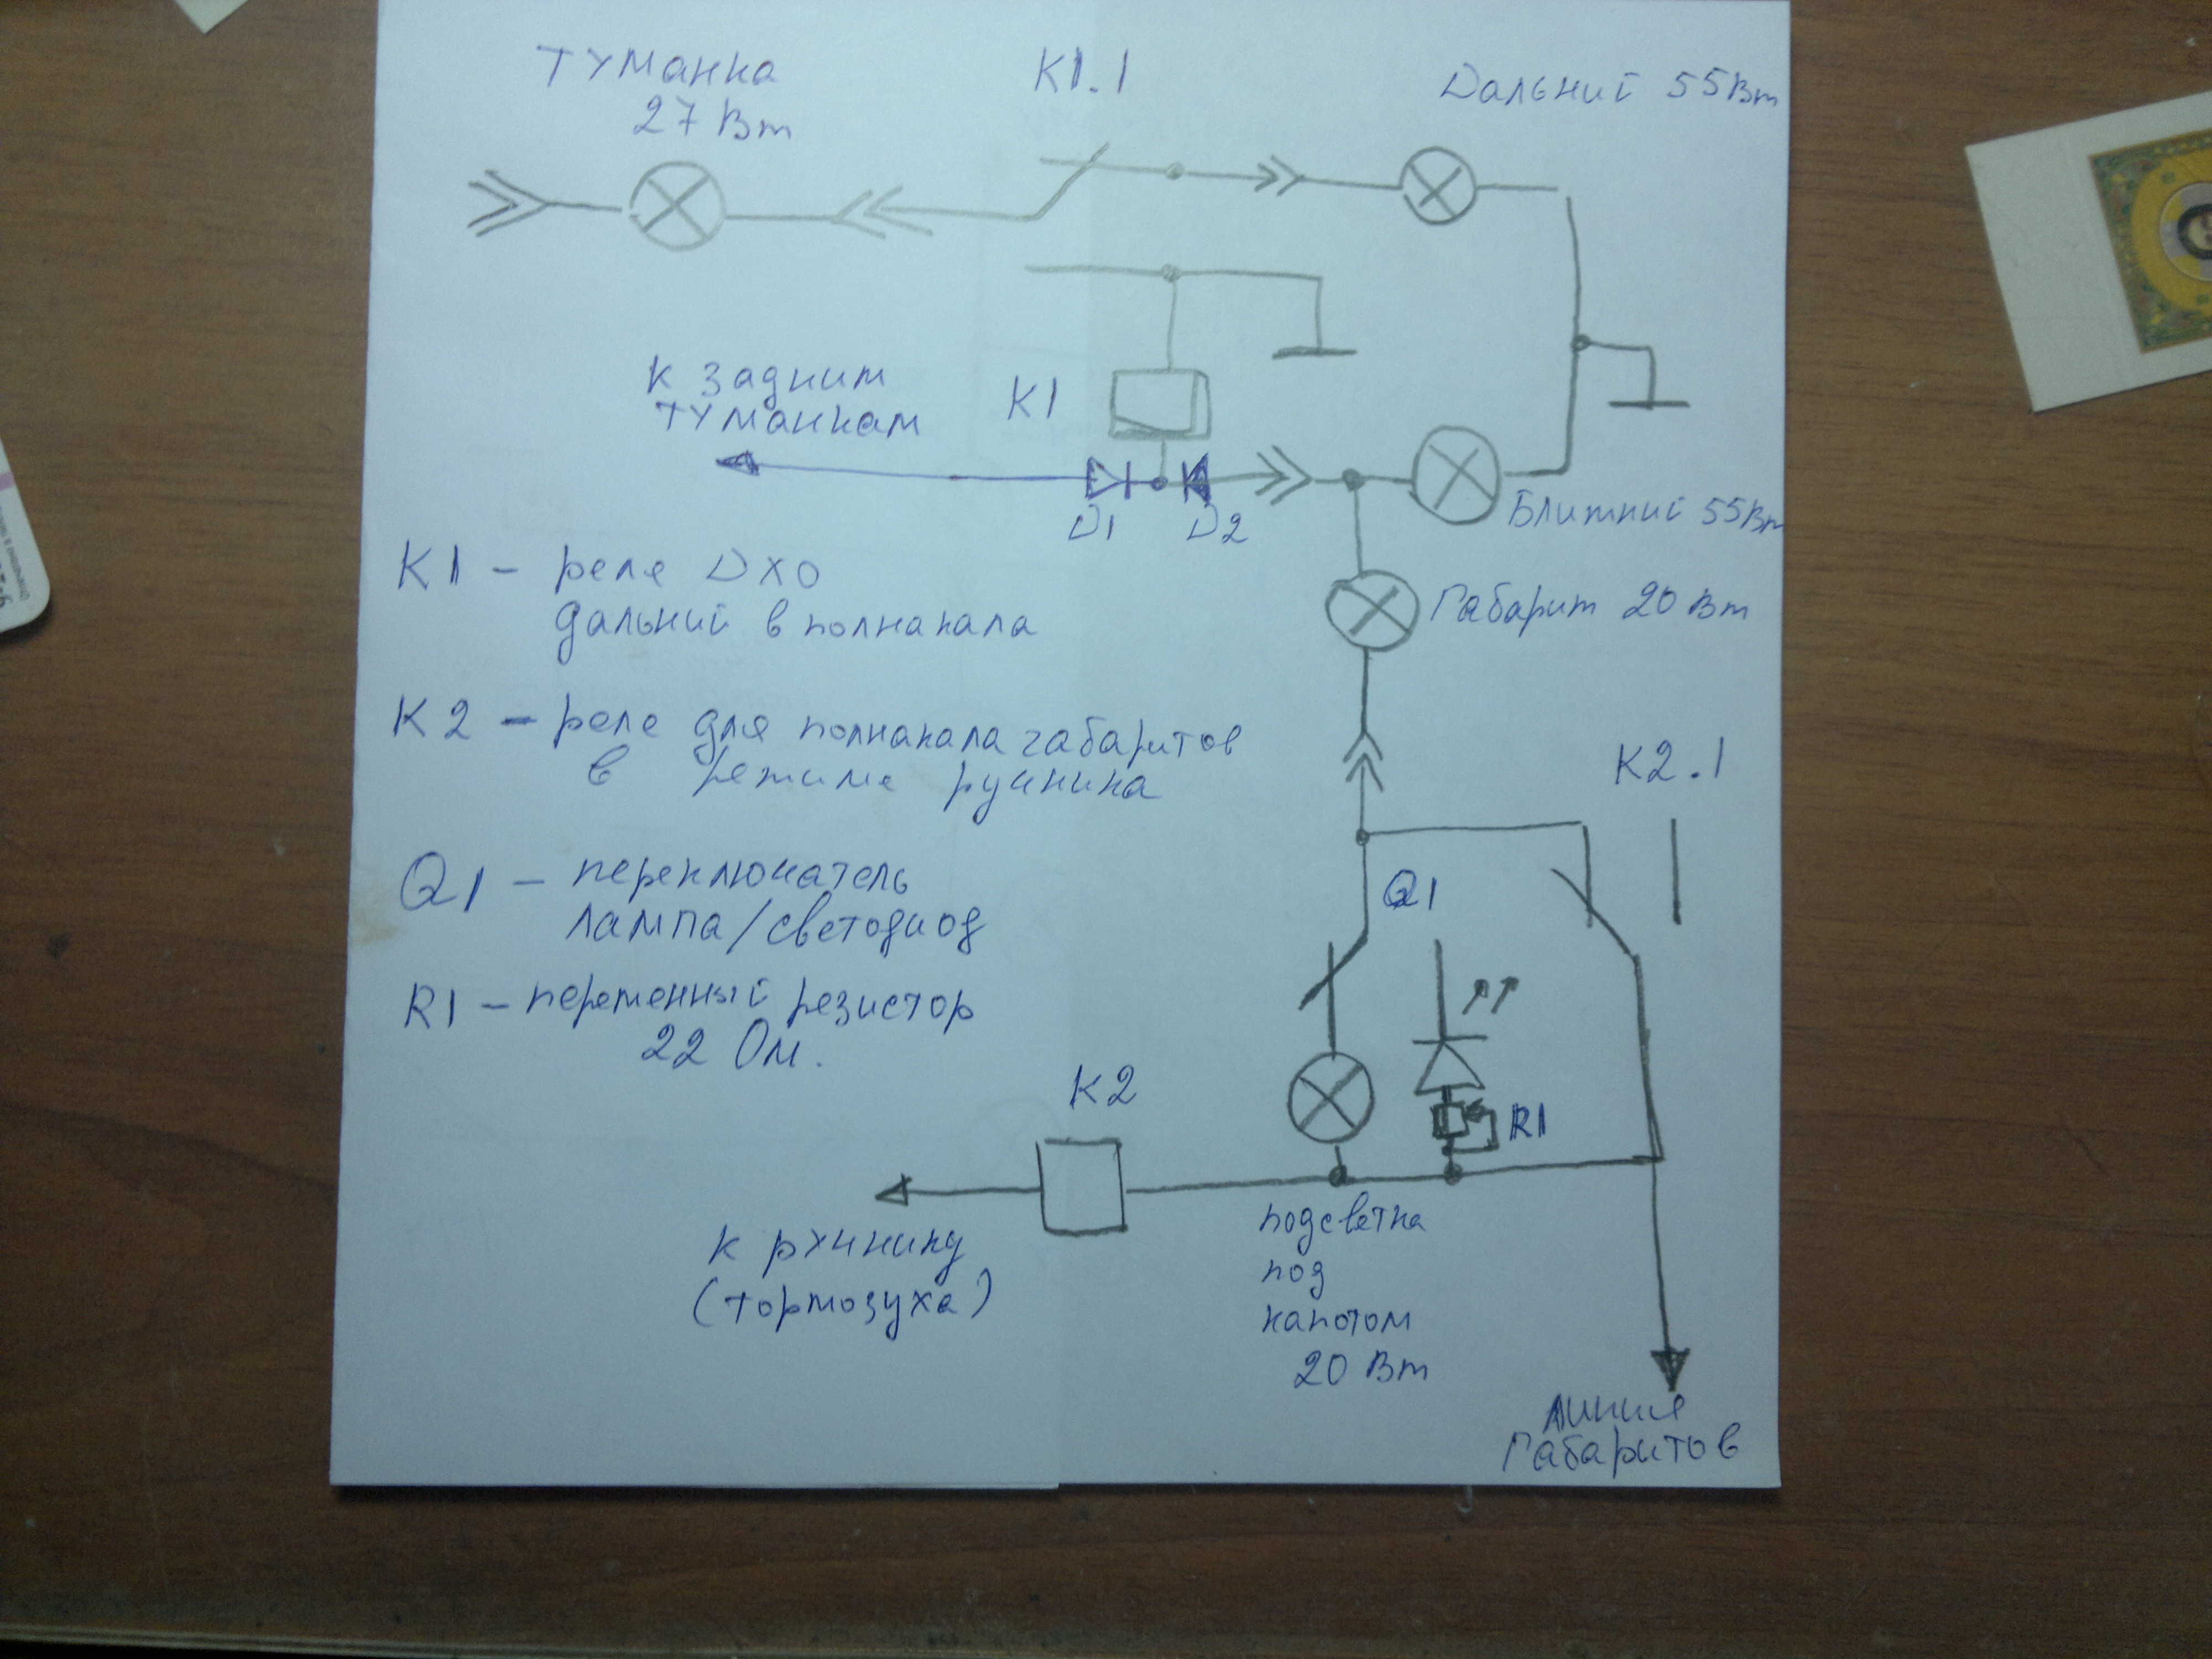 Туманка
27 Вт
К1.1
Дальний 55Вт
К задним
туманкам
К1
D1
D2
Ближний 55Вт
К1 - реле DХО
дальний в полнакала
Габарит 20 Вт
К2 - реле для полнакала габаритов
в режиме ручника
К2.1
Q1 - переключатель
лампа/светодиод
Q1
R1 - переменный резистор
22 Ом.
К2
R1
к рхчнику
(тормозуха)
подсветка
под
капотом
20 Вт
линия
Габаритов